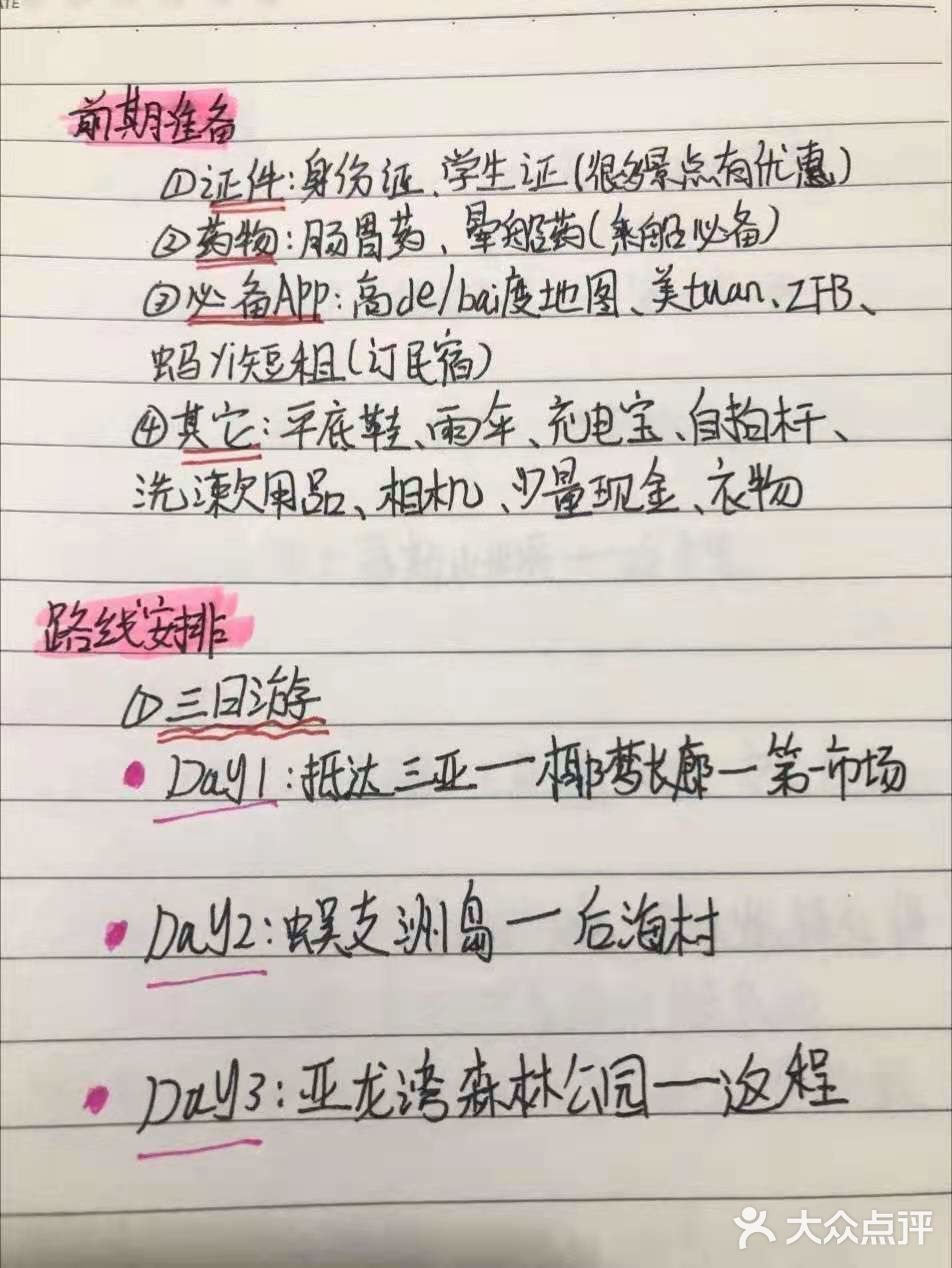 ATE
前期准备
①证件:身份证、学生证(很多景点有优惠)
②药物:肠胃药、晕船药(乘船必备)
③必备App:高de/bai度地图、美tuan、ZFB、
蚂yi短租(订民宿)
④其它:平底鞋、雨伞、充电宝、自拍杆、
洗漱用品、相机、少量现金、衣物
路线安排
①三日游
Day1:抵达三亚一椰梦长廊一第一市场
Day2:蜈支洲岛一后海村
Day3:亚龙湾森林公园一返程
大众点评